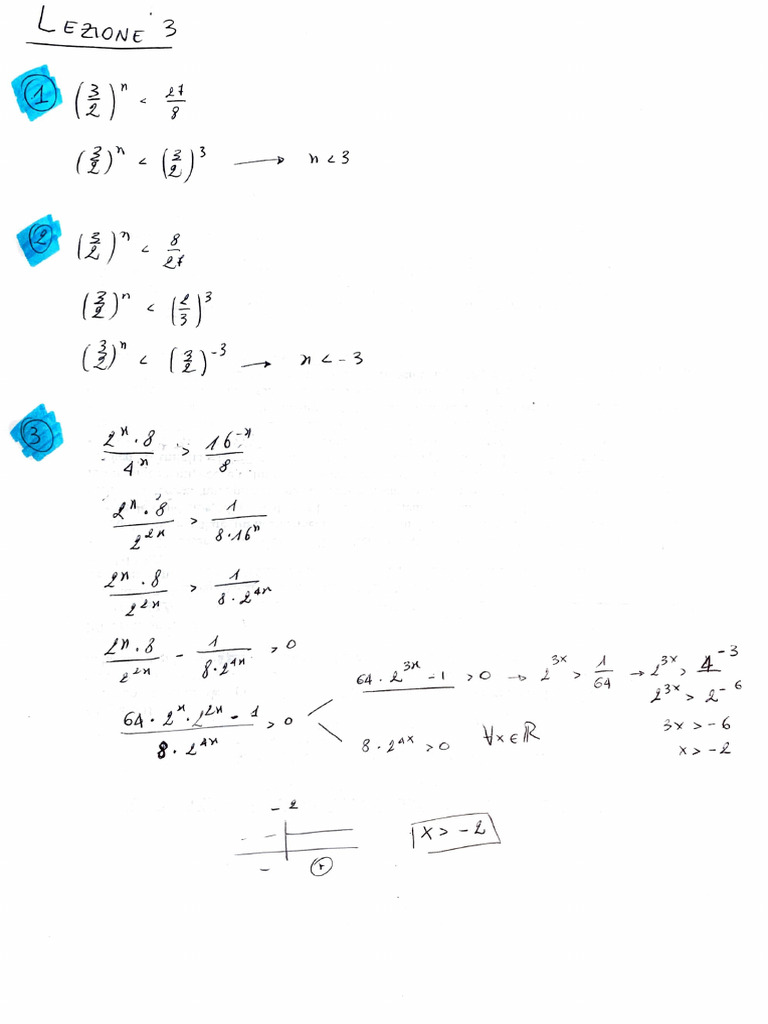 LEZIONE 3
1 (3/2)^x < 27/8
(3/2)^x < (3/2)^3 → x < 3
2 (3/2)^x < 8/27
(3/2)^x < (2/3)^3
(3/2)^x < (3/2)^-3 → x < -3
3 2^x · 8 / 4^x > 16^-x / 8
2^x · 8 / 2^2x > 1 / 8 · 16^x
2^x · 8 / 2^2x > 1 / 8 · 2^4x
2^x · 8 / 2^2x - 1 / 8 · 2^4x > 0
64 · 2^x · 2^2x - 1 / 8 · 2^4x > 0
64 · 2^3x - 1 > 0 → 2^3x > 1/64 → 2^3x > 4^-3
2^3x > 2^-6
3x > -6
x > -2
8 · 2^4x > 0 ∀x∈ℝ
-2
- +
x > -2